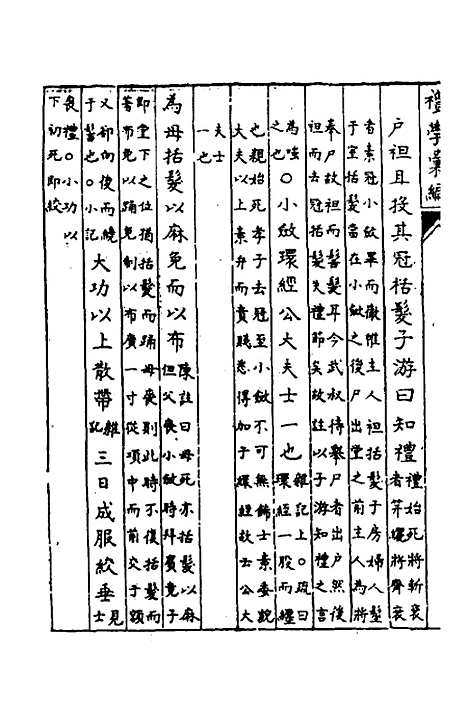 禮學彙編
戶袒且投其冠括髮子游曰知禮 禮始死將斬衰
者筓纚將齊衰
者素冠小斂畢而徹帷主人袒括髮于房婦人髽
于室括髮當在小斂之後尸出堂之前主人為將
奉尸故袒而括髮耳今武叔待舉尸者出戶然後
袒而去冠括髮失禮節矣故註以子游知禮之言
為嗤之也
○小斂環絰公大夫士一也 雜記上○疏曰
環絰一股而纏
也親始死孝子去冠至小斂不可無飾士素委貌
大夫以上素弁而貴賤悉得加于環絰故云公大
夫士
一也
為母括髮以麻免而以布 陳註曰母死亦括髮以麻
但父喪小斂時拜賓竟子
即堂下之位猶括髮而踊母喪則此時不復括髮而
著布免以踊免制以布廣一寸從項中而前交于額
又卻向後而繞
于髻也○小記
大功以上散帶 雜記
三日成服絞垂 見士
喪禮○小功以
下初死即絞